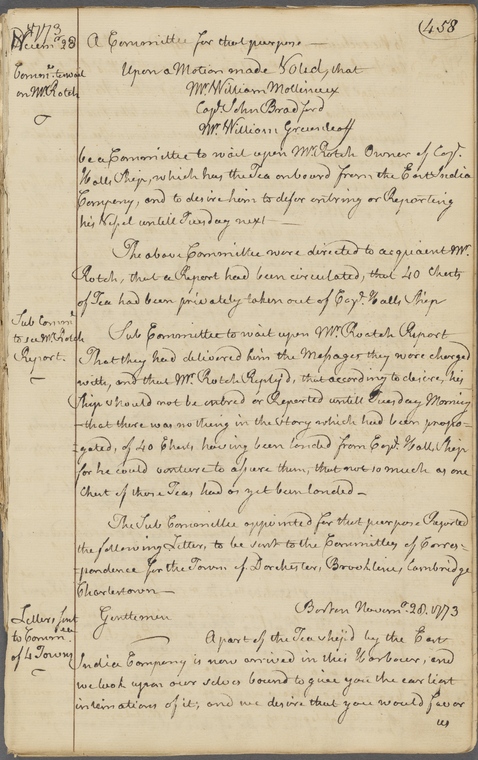 1773 (458
Novemr 28 A Committee for that purpose —
Upon a Motion made Voled, that
Comee. to wait
on Mr. Rotch
Mr. William Mollineux
Capt. John Bradford
Mr. William Greenleaff
be a Committee to wait upon Mr. Rotch Owner of Capt.
Halls Ship, which has the Tea onboard from the East India
Company, and to desire him to defer entring or Reporting
his Vessel untill Tuesday next —
The above Committee were directed to acquaint Mr.
Rotch, that a Report had been circulated, that 40 Chests
of Tea had been privately taken out of Capt. Halls Ship
Sub Commee
to see Mr. Rotch
Report.
Sub Committee to wait upon Mr. Roatch Report
That they had delivered him the Messages they were charged
with, and that Mr. Rotch Reply'd, that according to desire, his
Ship should not be entred or Reported untill Tuesday Morning
—that there was nothing in the Story which had been propo-
-gated, of 40 Chests having been landed from Capt. Halls Ship
for he could venture to assure them, that not so much as one
Chest of those Teas had as yet been landed —
The Sub Committee appointed for that purpose Reported
the following Letter, to be sent to the Committees of Corres-
-pondence for the Towns of Dorchester, Brookline, Cambridge
Charlestown —
Boston Novemr. 28. 1773
Letters sent
to Commees
of 4 Towns
Gentlemen
A part of the Tea ship'd by the East
India Company is now arrived in this Harbour, and
we look upon our selves bound to give you the earliest
intimations of it, and we desire that you would favor
us